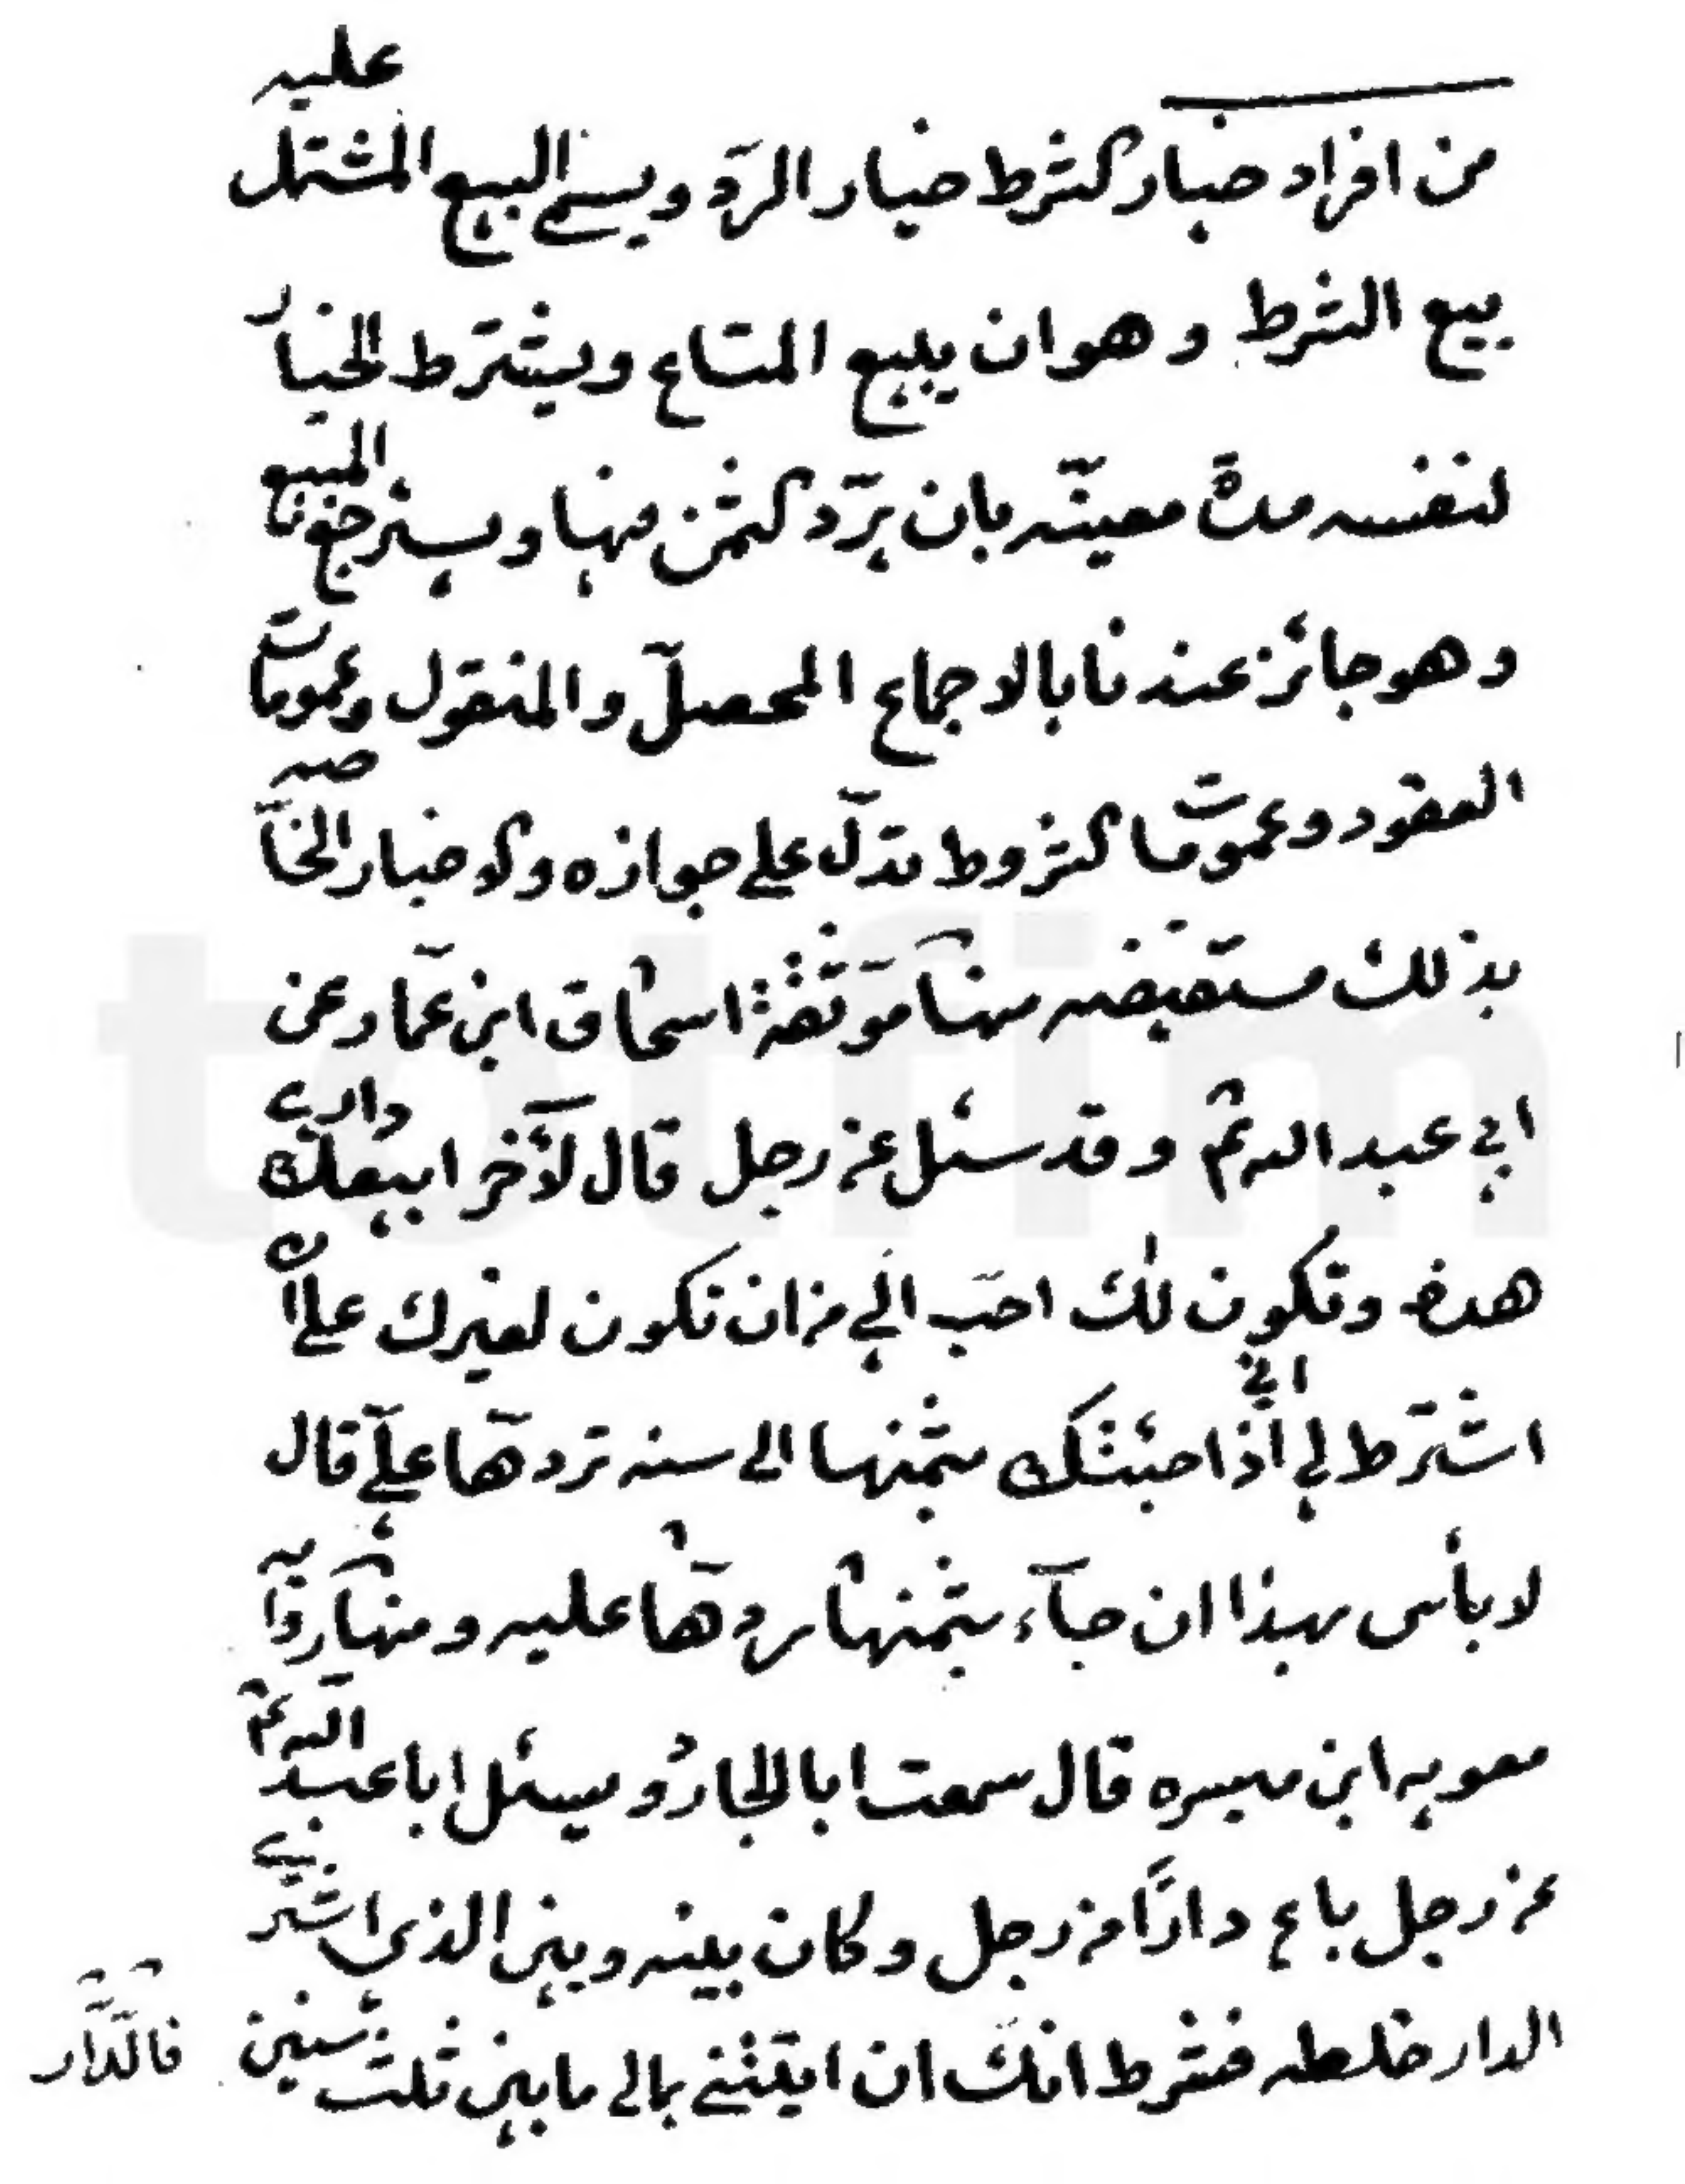 من افراد خيار الشرط خيار الرّد ويسمى البيع المشتمل عليه
بيع الشرط وهو ان يبيع المتاع ويشترط الخيار
لنفسه مدةً معيّنه بان يرّد الثمن فيها ويسترجع المبيع
وهو جائز عندنا بالاجماع المحصّل والمنقول وعمومات
العقود وعمومات الشروط تدلّ على جوازه والاخبار الخاصّه
بذلك مستفيضه منها موثّقة اسحاق ابن عمّار عن
ابي عبد الله ع وقد سئل عن رجل قال لآخر ابيعك داري
هذه وتكون لك احبّ اليّ من ان تكون لغيرك على ان
اشترط لي اني اذا جئتك بثمنها الى سنه تردّها عليّ قال
لا بأس بهذا ان جآء بثمنها ردّها عليه ومنها روايه
معويه ابن ميسره قال سمعت ابا الجارود يسئل ابا عبد الله ع
عن رجل باع دارًا من رجل وكان بينه وبين الذي اشترى
الدار خلطه فشرط انك ان اتيتني بمالي ما بين ثلث سنين
فالدّار